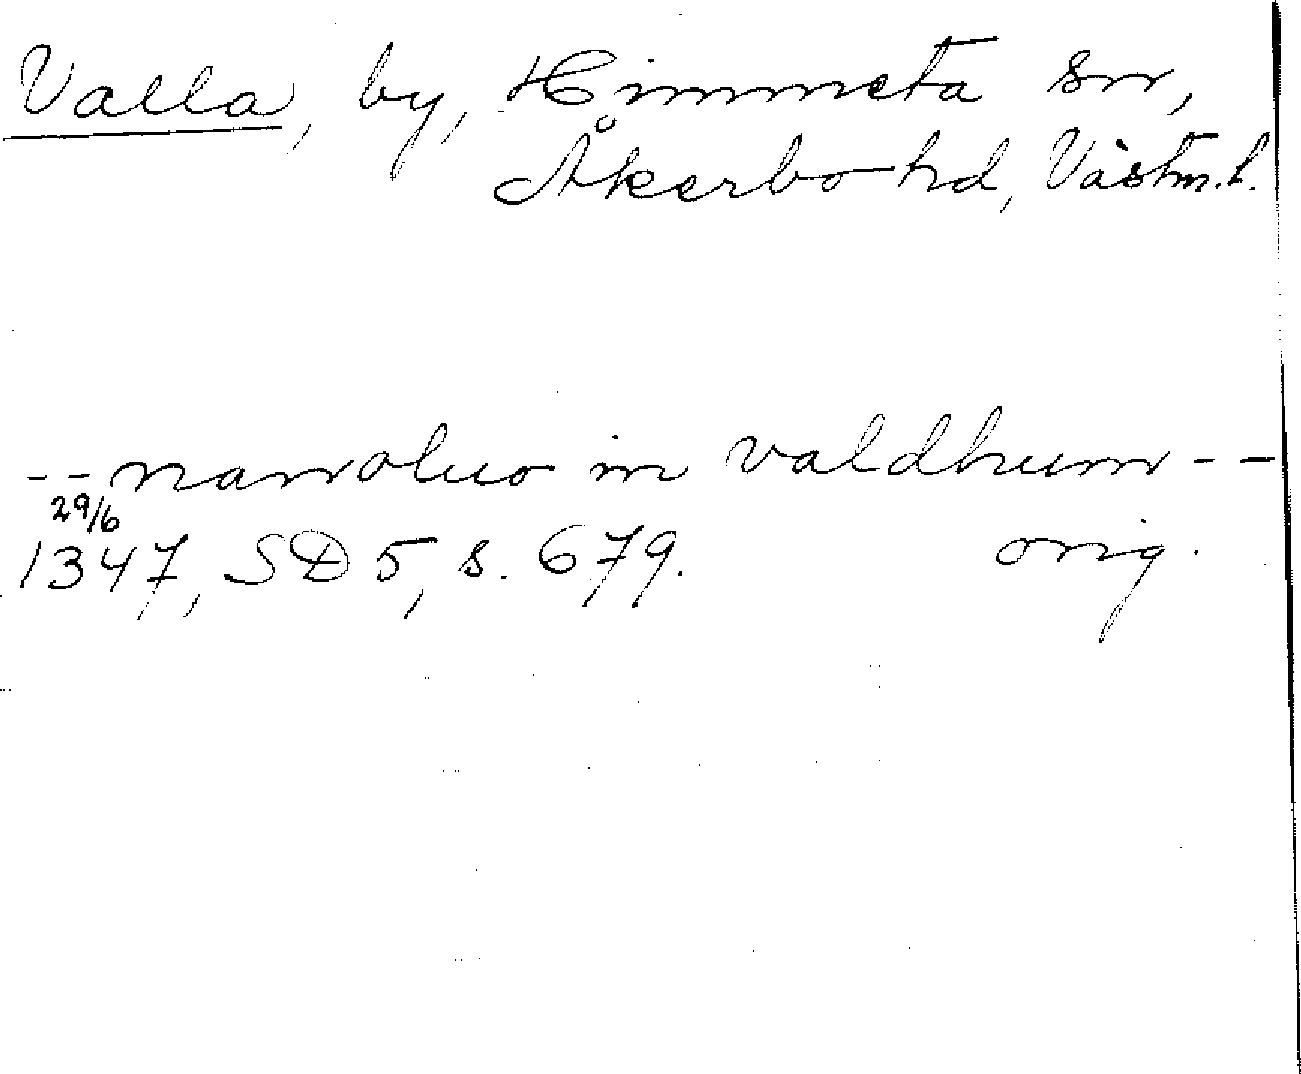 Valla, by, Himmeta sn,
Åkerbo hd, Västm. l.
-- nanvoluo in valdhum --
29/6
1347, SD 5, s. 679. orig.